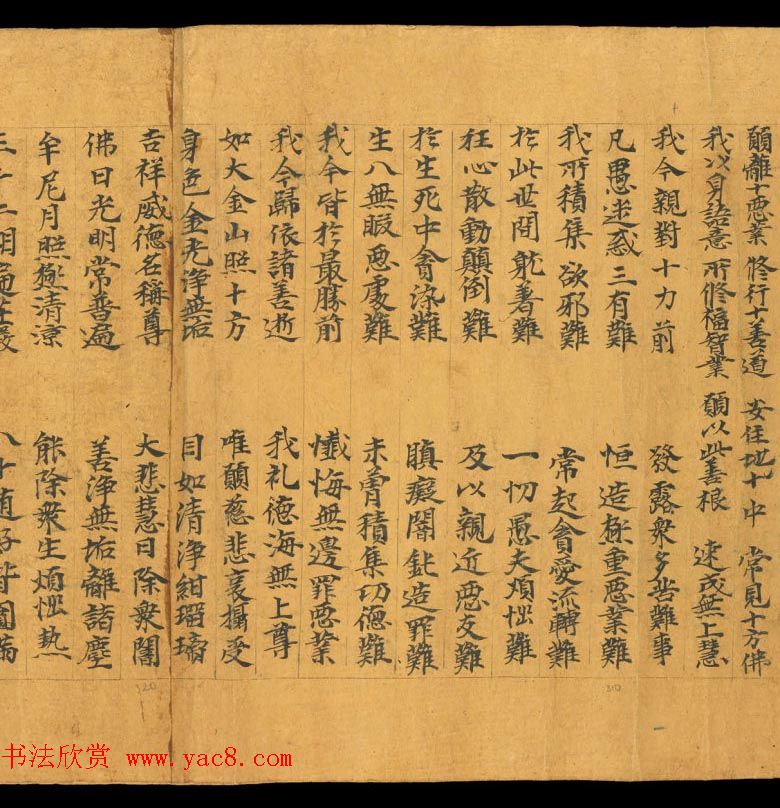 願離十惡業 修行十善道 安住地十中 常見十方佛
我以身語意 所修福智業 願以此善根 速成無上慧
我今親對十力前 發露衆多苦難事
凡愚迷惑三有難 恒造極重惡業難
我所積集欲邪難 常起貪愛流轉難
於此世間躭著難 一切愚夫煩惱難
狂心散動顛倒難 及以親近惡友難
於生死中貪染難 瞋癡闇鈍造罪難
生八無暇惡處難 未曾積集功德難
我今皆於最勝前 懺悔無邊罪惡業
我今歸依諸善逝 我礼德海無上尊
如大金山照十方 唯願慈悲哀攝受
身色金光淨無垢 目如清淨紺瑠璃
吉祥威德名稱尊 大悲慧日除衆闇
佛日光明常普遍 善淨無垢離諸塵
牟尼月照極清涼 能除衆生煩惱熱
三十二相遍莊嚴 八十随好皆圓滿
120
310
书法欣赏 www.yac8.com